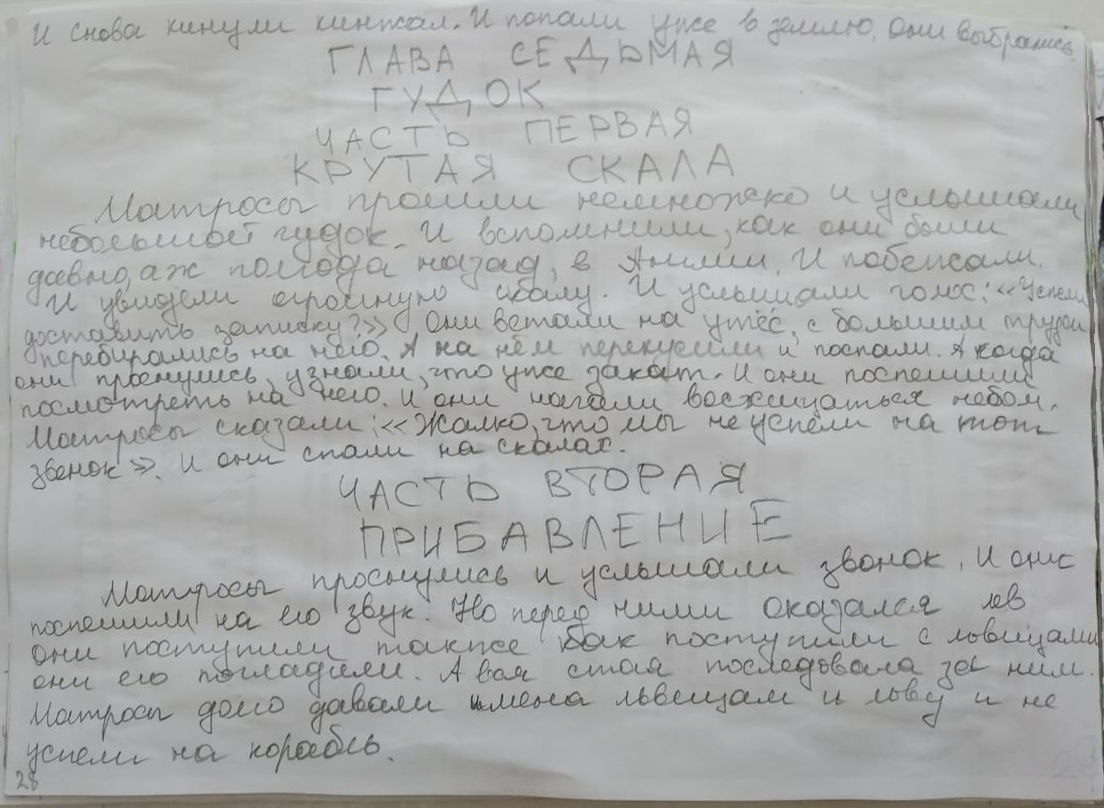 И снова кинули кинжал. И попали уже в землю. Они выбрались.
ГЛАВА СЕДЬМАЯ
ГУДОК
ЧАСТЬ ПЕРВАЯ
КРУТАЯ СКАЛА
Матросы прошли немножко и услышали
небольшой гудок. И вспомнили, как они были
давно, аж полгода назад, в Англии. И побежали.
И увидели огромную скалу. И услышали голос: «Успели
доставить записку?» Они встали на утёс, с большим трудом
перебирались на него. А на нём перекусили и поспали. А когда
они проснулись, узнали, что уже закат. И они поспешили
посмотреть на него. И они начали восхищаться небом.
Матросы сказали: «Жалко, что мы не успели на тот
звонок». И они спали на скалах.
ЧАСТЬ ВТОРАЯ
ПРИБАВЛЕНИЕ
Матросы проснулись и услышали звонок. И они
поспешили на его звук. Но перед ними оказался лев
они поступили также как поступили с львицами
они его погладили. А вся стая последовала за ним.
Матросы долго давали имена львицам и льву и не
успели на корабль.
28